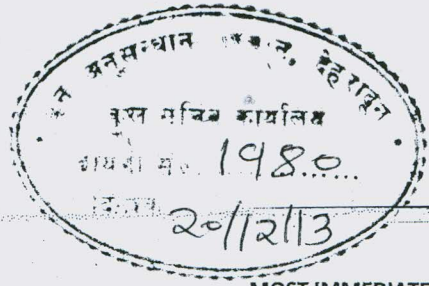 अनुसन्धान देहरादून
कुल सचिव कार्यालय
डायरी सं. 1980
दिनांक 20/12/13
MOST IMMEDIATE